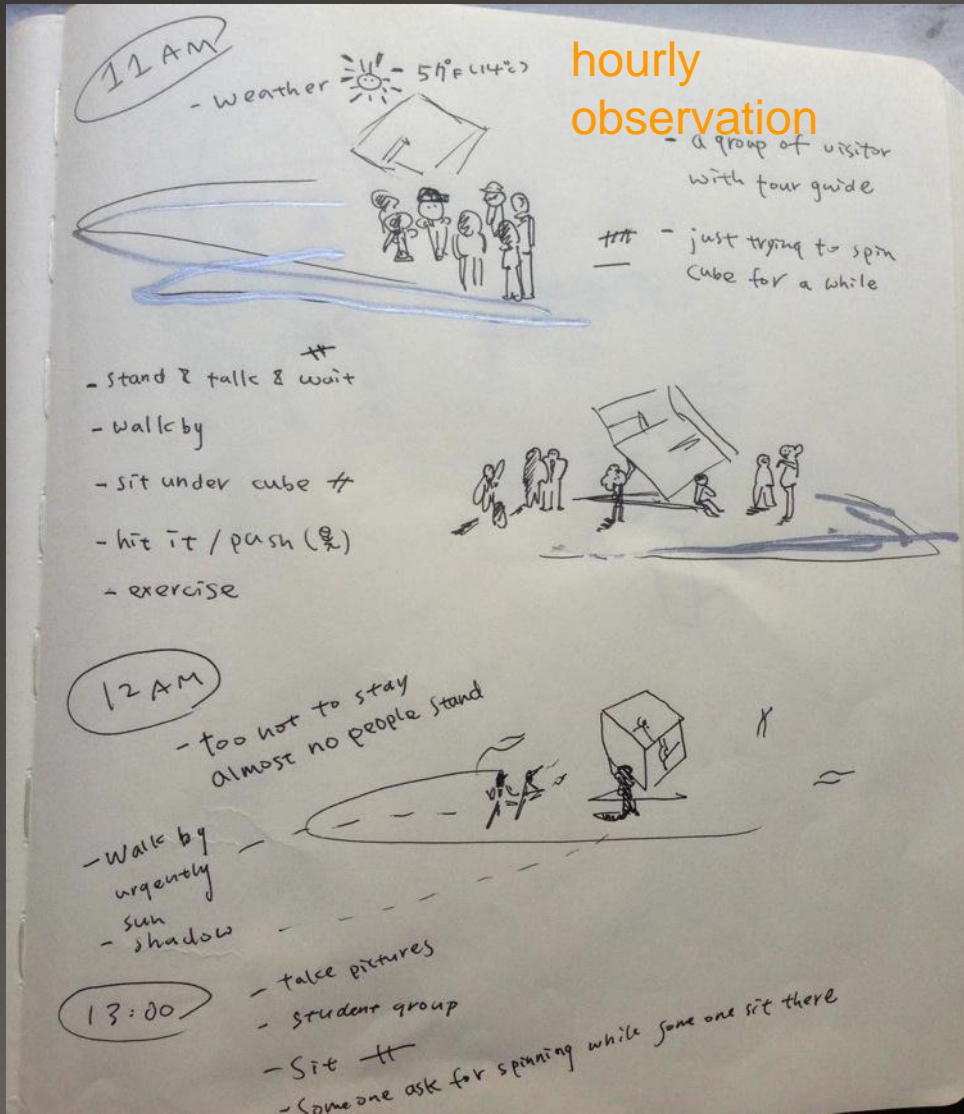 hourly
observation
11 AM
- weather 57°F (14°C)
- a group of visitor
with tour guide
- just trying to spin
cube for a while
- stand & talk & wait
- walk by
- sit under cube
- hit it / push
- exercise
12 AM
- too hot to stay
almost no people stand
- Walk by
urgently
sun
- shadow
13:00
- take pictures
- student group
- Sit
- Someone ask for spinning while some one sit there